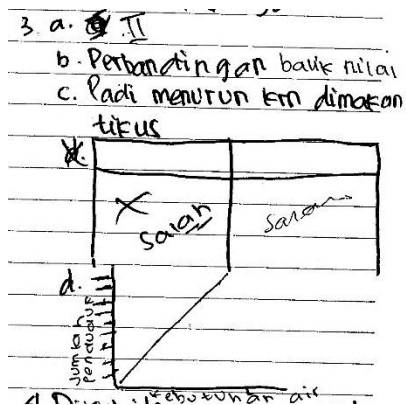 3. a. II
b. Perbandingan balik nilai
c. Padi menurun krn dimakan
tikus
d.
Salah
d.
Jumlah
Penduduk
Kebutuhan air